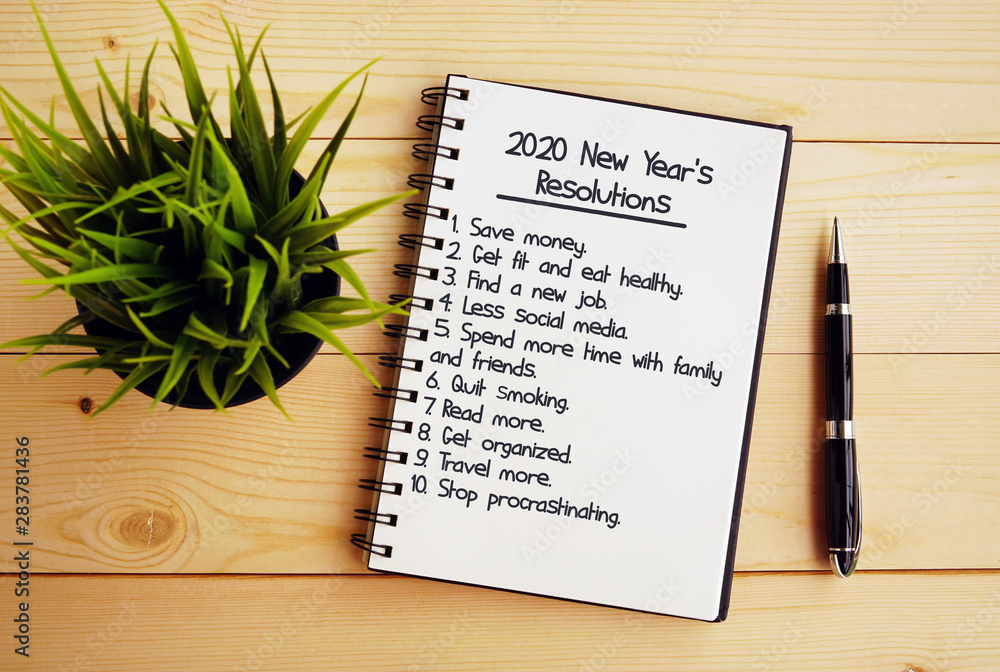 2020 New Year's
Resolutions
1. Save money.
2. Get fit and eat healthy.
3. Find a new job.
4. Less social media.
5. Spend more time with family
and friends.
6. Quit smoking.
7. Read more.
8. Get organized.
9. Travel more.
10. Stop procrastinating.
Adobe Stock | #283781436